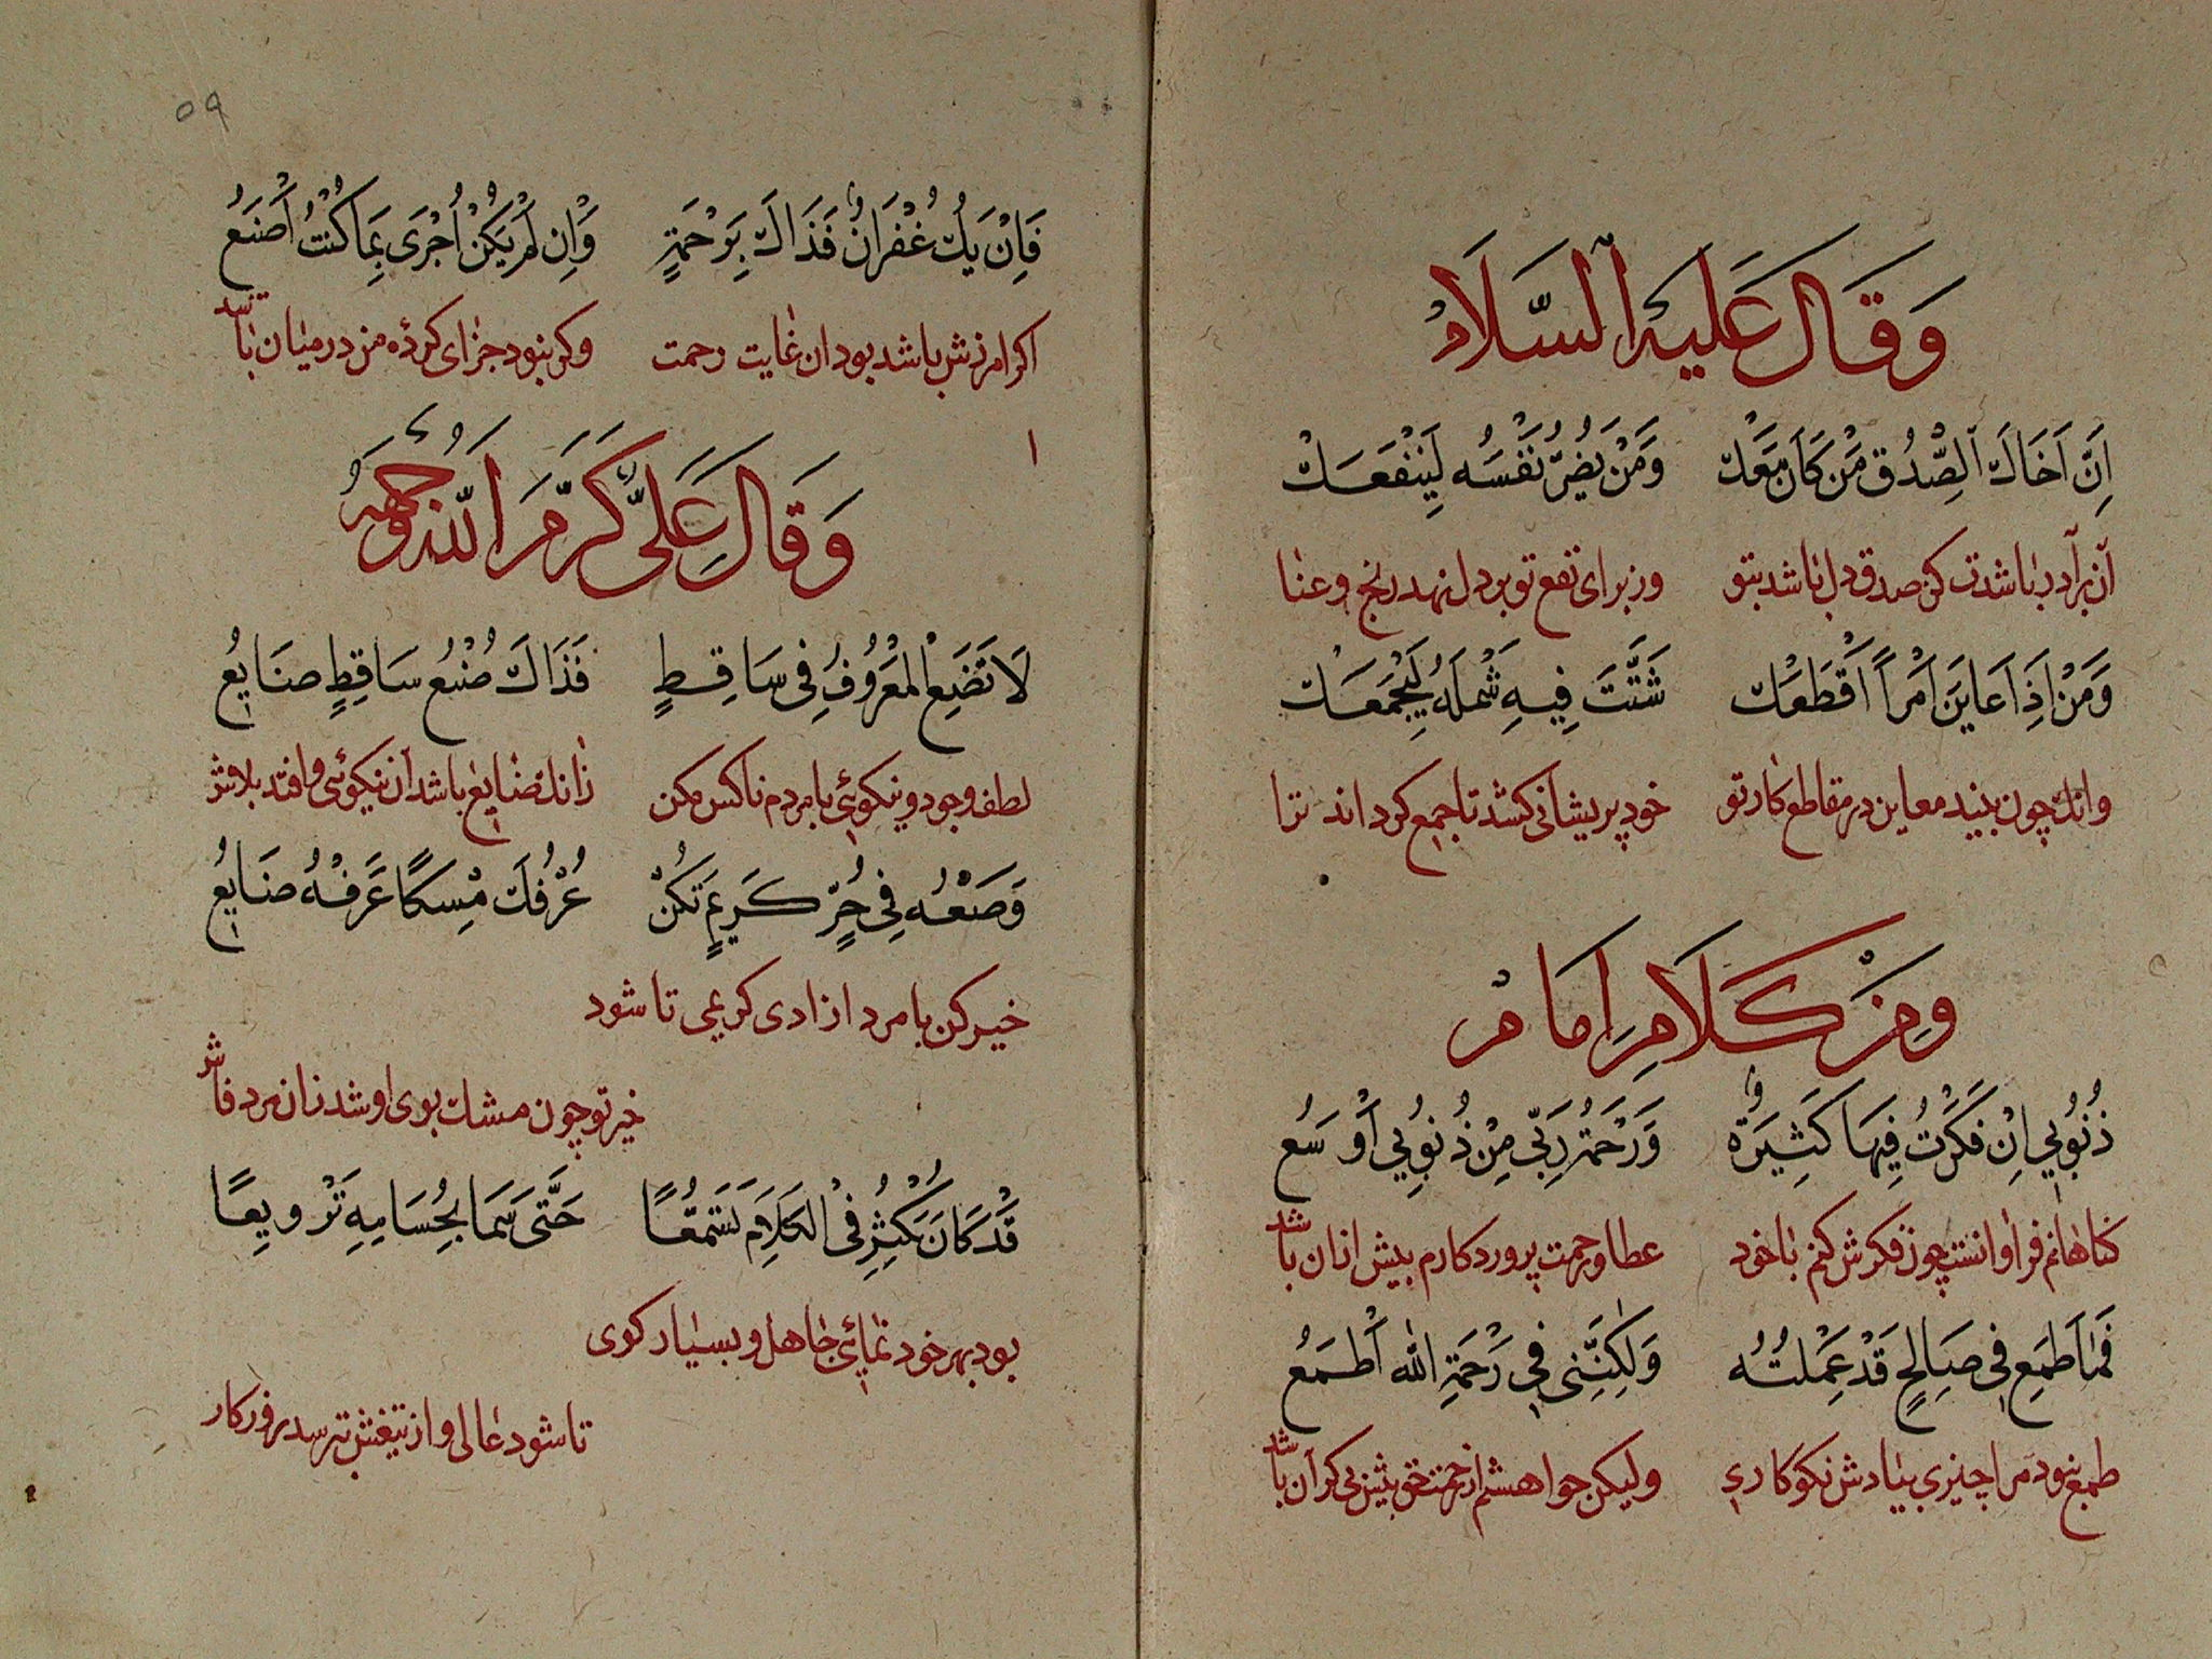 وَقَالَ عَلَيْهِ السَّلَامُ
اِنَّ اَخَاكَ الصِّدْقِ مَنْ كَانَ مَعَكْ وَمَنْ يَضُرُّ نَفْسَهُ لِيَنْفَعَكْ
آن برادر باشدت کز صدق دل باشد بتو وز برای نفع تو بر دل نهد رنج و عنا
وَمَنْ اِذَا عَايَنَ اَمْرًا اَقْطَعَكْ شَتَّتَ فِيهِ شَمْلَهُ لِيَجْمَعَكْ
وانک چون بیند معاین در مقاطع کار تو خود پریشانی کشد تا جمع کرداند ترا
وَمِنْ كَلَامِ اِمَامْ
ذُنُوبِي اِنْ فَكَّرْتُ فِيهَا كَثِيرَةٌ وَرَحْمَةُ رَبِّي مِنْ ذُنُوبِي اَوْسَعُ
کناهانم فراوانست چون فکرش کنم با خود عطا و رحمت پروردکارم بیش ازان باشد
فَمَا اَطْمَعِ فِي صَالِحٍ قَدْ عَمِلْتُهُ وَلٰكِنَّنِي فِي رَحْمَةِ اللهِ اَطْمَعُ
طمع نبود مرا چیزی بنیادش نکوکاری ولیکن خواهشم از رحمت حق بیش بی کران باشد
٥٩
فَاِنْ يَكُ غُفْرَانٌ فَذَاكَ بِرَحْمَةٍ وَاِنْ لَمْ يَكُنْ اُجْزَى بِمَا كُنْتُ اَصْنَعُ
اکر امرزش باشد بود ان غایت رحمت وکر نبود جزای کردهٔ من در میان باشد
وَقَالَ عَلِيٌّ كَرَّمَ اللهُ وَجْهَهُ
لَا تَضَعِ الْمَعْرُوفَ فِي سَاقِطٍ فَذَاكَ صُنْعُ سَاقِطٍ ضَايِعُ
لطف وجود و نیکوئی با مردم ناکس مکن زانک ضایع باشد آن نیکوئی و افتد بلاش
وَضَعْهُ فِي حُرٍّ كَرِيمٍ تَكُنْ عُرْفُكَ مِسْكًا عَرْفُهُ ضَايِعُ
خیر کن با مرد ازادی کریمی تا شود
خیر تو چون مشک بوی او شد زان مرد فاش
قَدْ كَانَ يَكْثُرُ فِي الْكَلَامِ تَسَمُّعًا حَتَّى سَمَا بِحُسَامِهِ تَرْوِيعًا
بود بهر خود نمائی جاهل و بسیار کوی
تا شود عالی و از تیغش ترسد فور کار